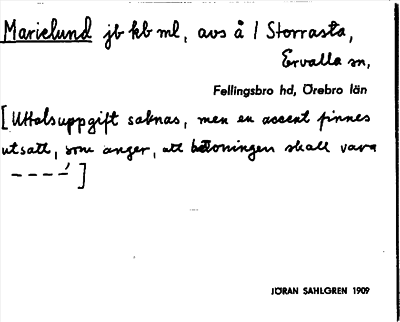 Marielund jb kb ml, avs å 1 Storrasta,
Ervalla sn,
Fellingsbro hd, Örebro län
[Uttalsuppgift saknas, men en accent finnes
utsatt, som anger, att betoningen skall vara
– – – –́ ]
JÖRAN SAHLGREN 1909